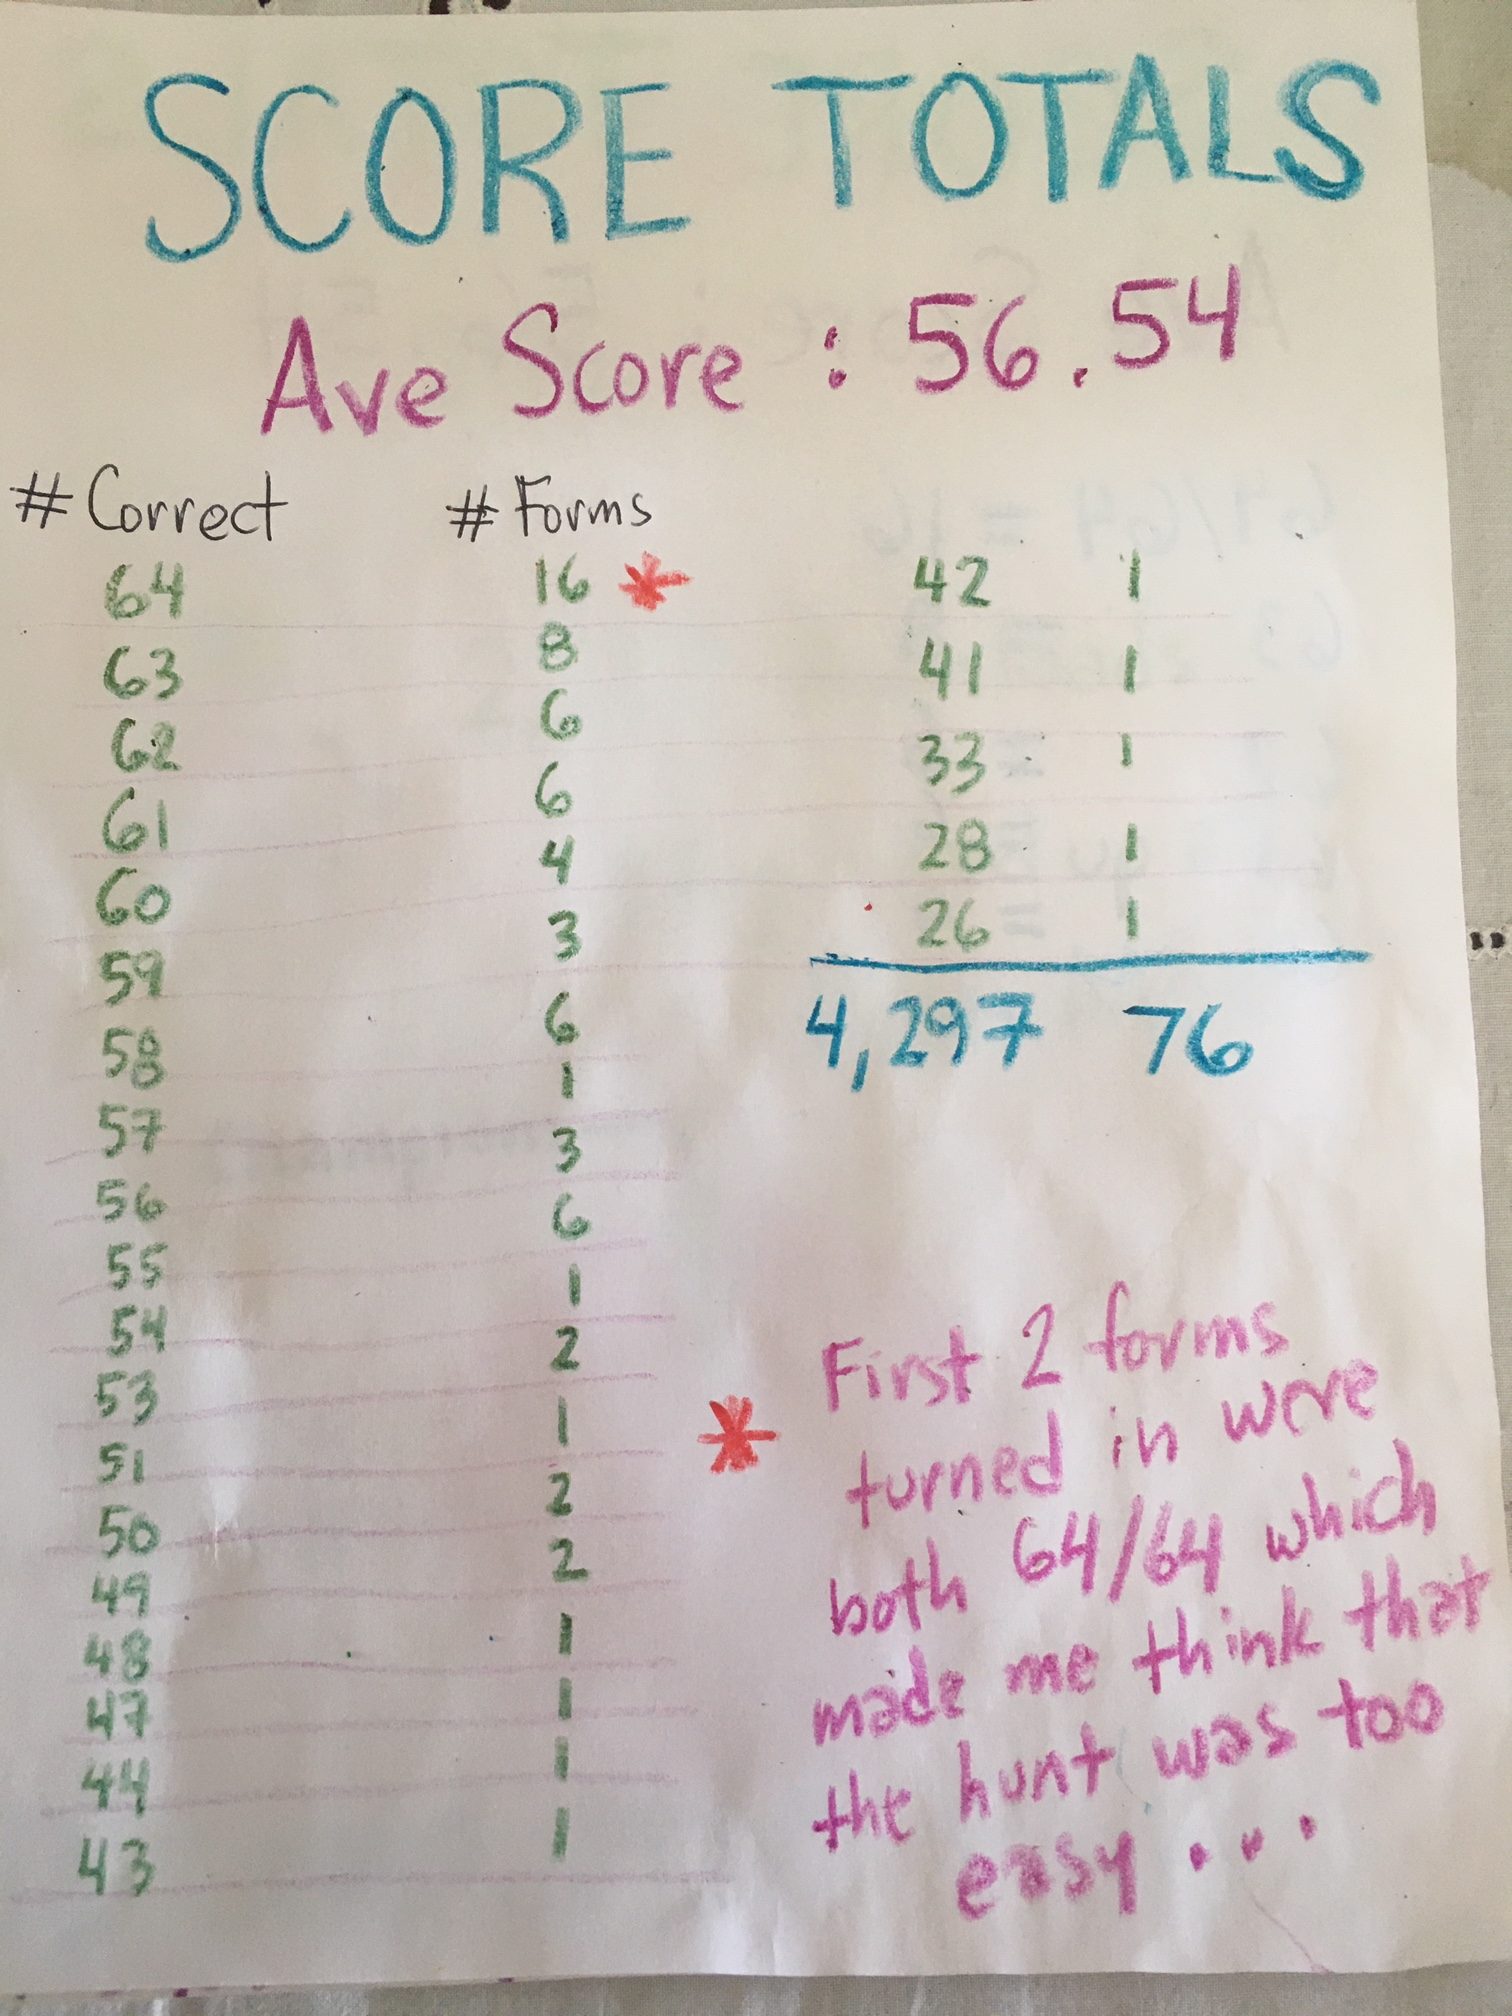 SCORE TOTALS
Ave Score : 56.54
# Correct # Forms
64 16 *
63 8
62 6
61 6
60 4
59 3
58 6
57 1
56 3
55 6
54 1
53 2
51 1
50 2
49 2
48 1
47 1
44 1
43 1
42 1
41 1
33 1
28 1
26 1
4,297 76
* First 2 forms
turned in were
both 64/64 which
made me think that
the hunt was too
easy...